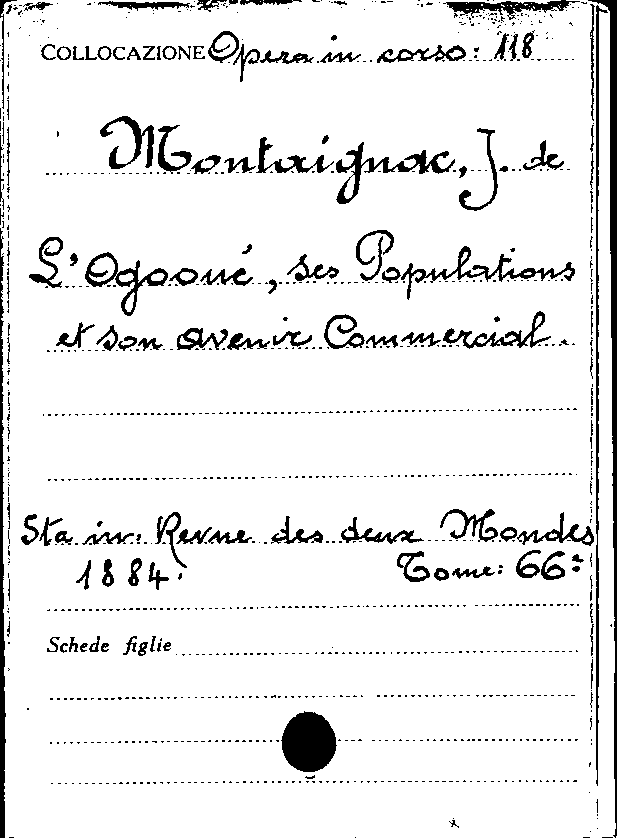 COLLOCAZIONE Opera in corso: 118
Montaignac, J. de
L'Ogooué, ses Populations
et son avenir Commercial.
Sta in: Revue des deux Mondes
1884. Tome: 66°
Schede figlie